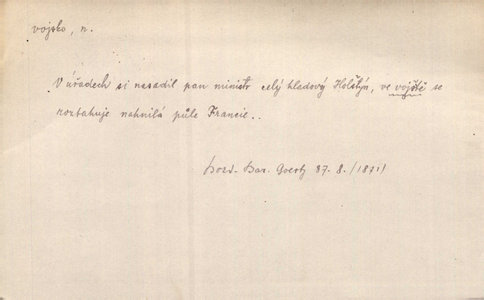 vojsko, n.
V úřadech si nasadil pan ministr celý hladový Holštýn, ve vojště se
roztahuje nahnilá půle Francie..
Goertz 37. 8. (1871)